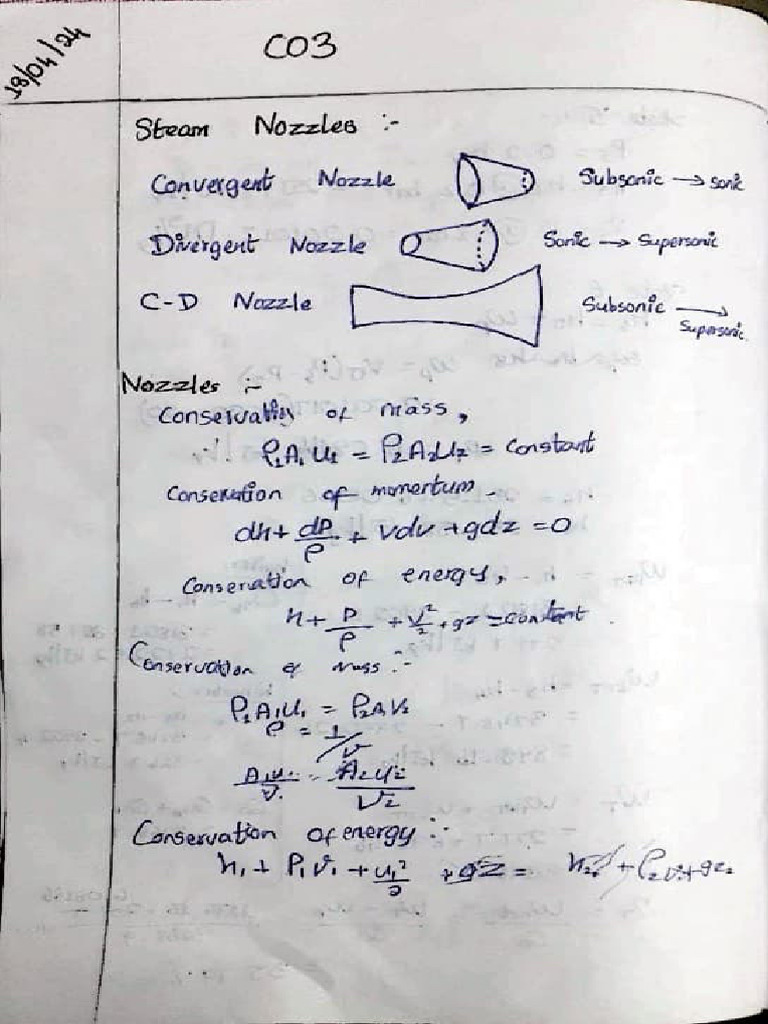 18/04/24
CO3
Steam Nozzles :-
Convergent Nozzle Subsonic → sonic
Divergent Nozzle Sonic → Supersonic
C-D Nozzle Subsonic → Supersonic
Nozzles :-
Conservation of mass,
∴ ρ₁A₁U₁ = ρ₂A₂U₂ = constant
Conservation of momentum.
dh + dP/ρ + vdv + gdz = 0
Conservation of energy,
h + P/ρ + V²/2 + gz = constant.
Conservation of mass :-
ρ₁A₁U₁ = ρ₂AV₂
ρ = 1/v
A₁u₁/v₁ = A₂U₂/V₂
Conservation of energy :-
h₁ + P₁V₁ + u₁²/2 + gz = h₂ + P₂V₂ + gz₂